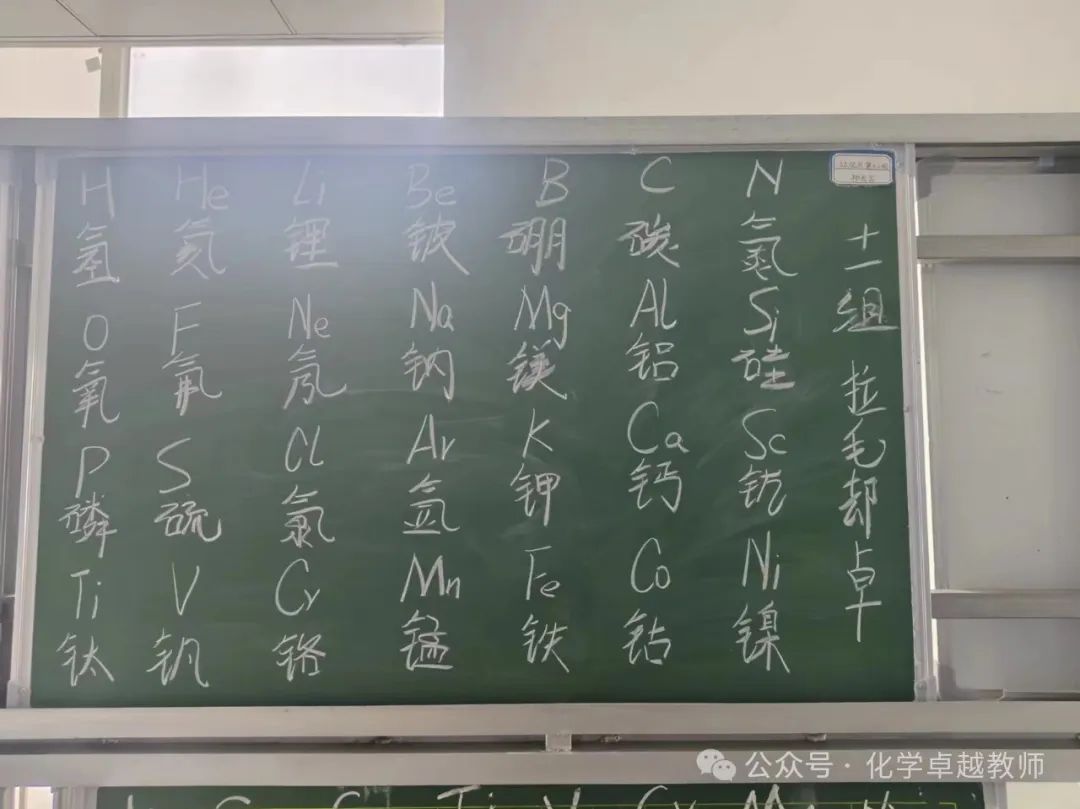 H He Li Be B C N
氢 氦 锂 铍 硼 碳 氮
O F Ne Na Mg Al Si
氧 氟 氖 钠 镁 铝 硅
P S Cl Ar K Ca Sc
磷 硫 氯 氩 钾 钙 钪
Ti V Cr Mn Fe Co Ni
钛 钒 铬 锰 铁 钴 镍
十一组 拉毛却卓
公众号·化学卓越教师